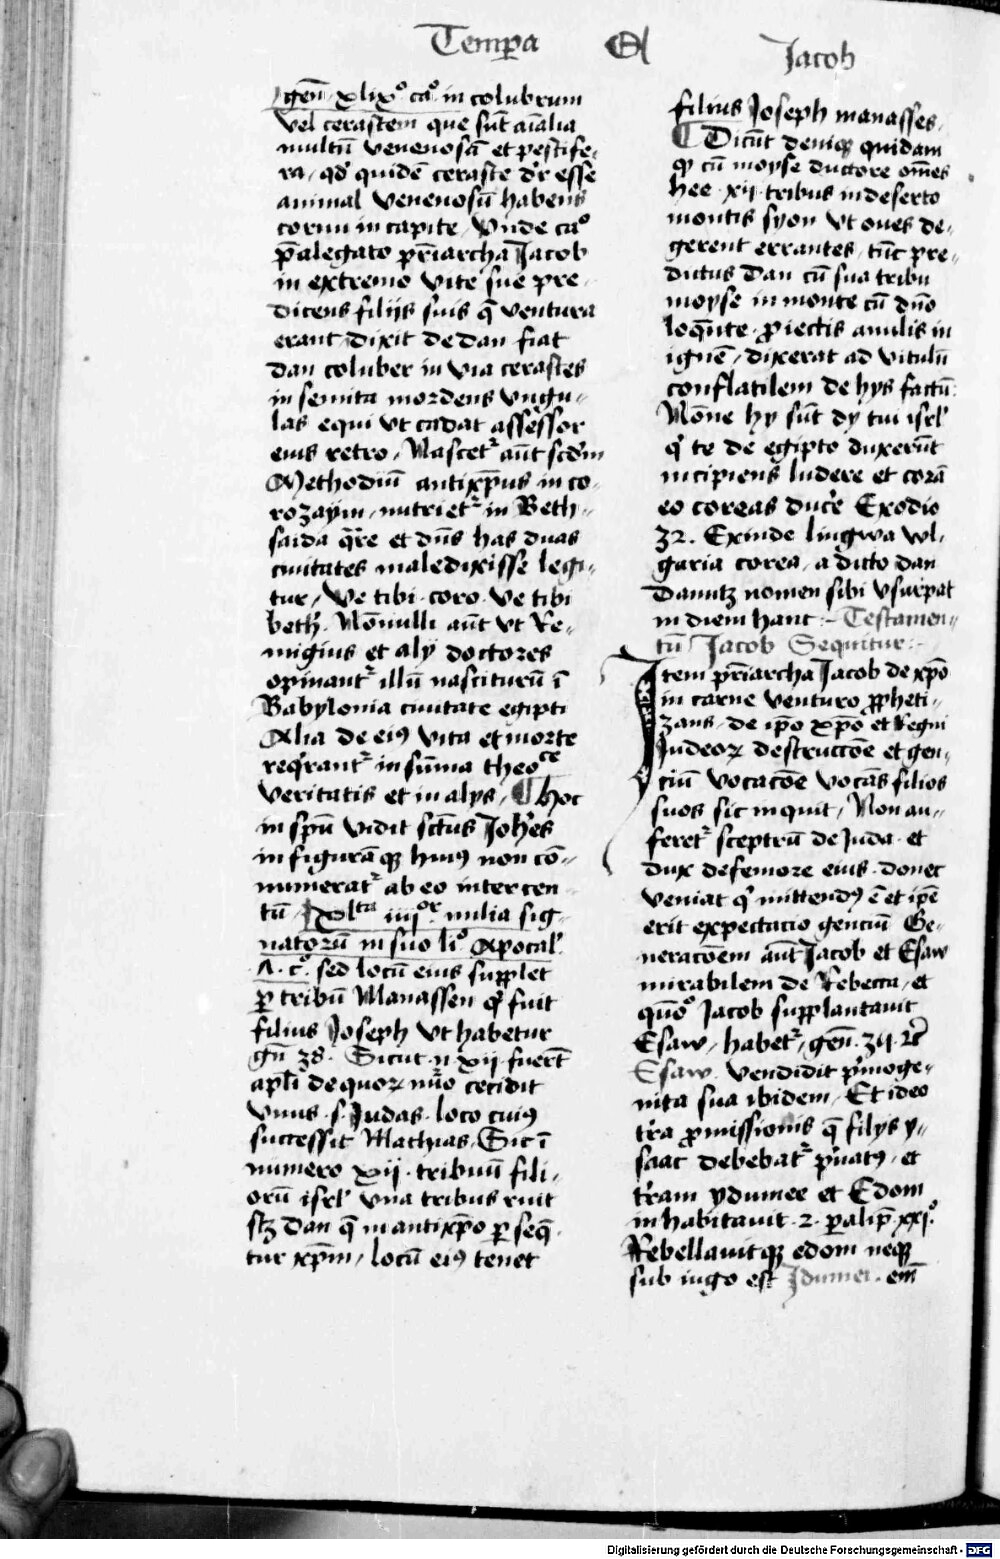 Temp̱a Et Jacob
gen̄ xlix° ca° in colubrum
vel cerastem que su̅t ai̅alia
multu̅ venenosa̅ et pestife-
ra, qd' quide̅ ceraste d'r esse
animal venenosu̅ habens
cornu in capite, Unde ca°
p̅alegato p̅riarcha Jacob
in extremo vite sue pre-
dicens filijs suis q̅ ventura
erant, dixit de dan fiat
dan coluber in via cerastes
in semita mordens ungu-
las equi ut cadat assessor
eius retro, Nascet᷑ au̅t scd'm
Methodiu̅ antixp̅us in co-
rozayin, nutriet᷑ in Beth-
saida q̅re et dn̅s has duas
civitates maledixisse legi-
tur, Ve tibi coro. ve tibi
beth. No̅nulli au̅t ut Re-
migius et aly doctores
opinant᷑ illu̅ nasciturū i̅
Babylonia civitate egipti
Alia de eiꝰ vita et morte
req̅rant᷑ in su̅ma theo^ce
veritatis et in alys, ¶ hoc
in spū vidit sct̅us Joh'es
in figura̅ q̨ huiꝰ non co̅-
numerat᷑ ab eo inter cen
tu̅ xl^ta iiij^or milia sig-
natorū in suo li° Apocal'
A. c°. sed locu̅ eius supplet
ꝑ tribu̅ Manassen q' fuit
filius Joseph ut habetur
gn̅ 38. Sicut .n. xij fuer̅t
apl̅i de quoꝝ nu̅o cecidit
unus .s. Judas. loco cuiꝰ
successit Mathias, Sic i̅
numero xij. tribuu̅ fili-
oru̅ isrl' una tribus ruit
sꝫ dan q̅ in antixp̅o ꝑseq̅
tur xp̅m, locu̅ eiꝰ tenet
filius Joseph manasses,
¶ Dicu̅t deniq̨ quidam
qꝫ cu̅ moyse ductore om̅es
hee xij tribus in deserto
montis syon ut oves de-
gerent errantes, tu̅c pre-
dictus dan cu̅ sua tribu
moyse in monte cu̅ dn̅o
loq̅nte. proiectis anulis in
igne̅, dixerat ad vitulū
conflatilem de hys factu̅:
No̅ne hy su̅t dy tui isrl'
q' te de egipto duxeru̅t
incipiens ludere et cora̅
eo coreas duc'e Exodio
32. Exinde lingwa vl-
garia corea, a dicto dan
Danntz nomen sibi usurpat
in diem hanc :~ Testamen-
tu̅ Jacob Sequitur :~
Item p̅riarcha Jacob de xp̅o
in carne venturo ꝓpheti-
zans, de ip̅o xp̅o et Regni
Judeoꝝ destruccōe et gen-
ciu̅ vocacōe voca̅s filios
suos sic inquit, Non au-
feret᷑ sceptru̅ de Juda et
dux de femore eius. donec
veniat q' mittendꝰ e̅ et ip̅e
erit expectacio genciu̅ Ge-
neracōem au̅t Jacob et Esaw
mirabilem de Rebecca, et
quo̅° Jacob supplantavit
Esaw, habet᷑, gen̄. 34. et
Esaw. vendidit p'moge-
nita sua ibidem, Et ideo
t'ra ꝓmissionis q̅ filys y-
saac debebat᷑ p'vatꝰ, et
t'ram ydumee et Edom
inhabitavit. 2. paralip̅. xxi°.
Rebellavitq̨ edom neq̨
sub iugo est Idumei. em̅